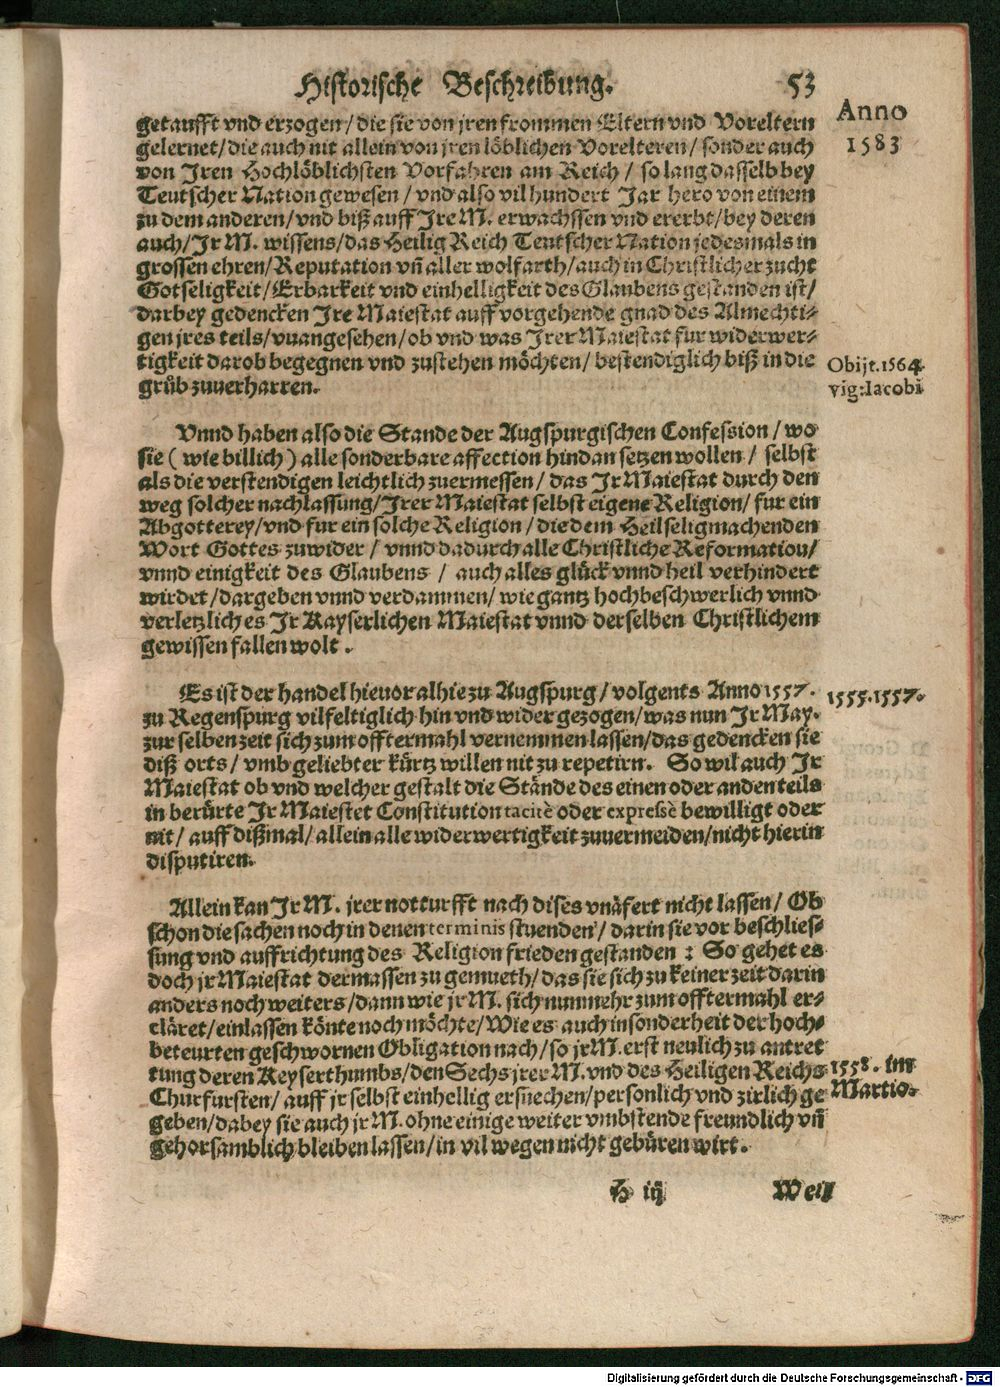 Historische Beschreibung. 53
Anno
1583
getaufft vnd erzogen/ die sie von jren frommen Eltern vnd Voreltern
gelernet/ die auch nit allein von jren löblichen Vorelteren/ sonder auch
von Iren Hochlöblichsten Vorfahren am Reich / so lang dasselb bey
Teutscher Nation gewesen / vnd also vil hundert Jar hero von einem
zu dem anderen/ vnd biß auff Ire M. erwachssen vnd ererbt/ bey deren
auch/ Ir M. wissens/ das Heilig Reich Teutscher Nation jedesmals in
grossen ehren/ Reputation vñ aller wolfarth/ auch in Christlicher zucht
Gotseligkeit/ Erbarkeit vnd einhelligkeit des Glaubens gestanden ist/
darbey gedencken Ire Maiestat auff vorgehende gnad des Almechti-
gen jres teils/ vnangesehen/ ob vnd was Irer Maiestat fur widerwer-
tigkeit darob begegnen vnd zustehen möchten/ bestendiglich biß in die
grüb zuuerharren.
Obijt. 1564
vig: Iacobi
Vnnd haben also die Stande der Augspurgischen Confession / wo
sie ( wie billich ) alle sonderbare affection hindan setzen wollen / selbst
als die verstendigen leichtlich zuermessen / das Ir Maiestat durch den
weg solcher nachlassung/ Irer Maiestat selbst eigene Religion/ fur ein
Abgotterey/ vnd fur ein solche Religion / die dem Heilseligmachenden
Wort Gottes zuwider / vnnd dadurch alle Christliche Reformation/
vnnd einigkeit des Glaubens / auch alles glück vnnd heil verhindert
wirdet / dargeben vnnd verdammen/ wie gantz hochbeschwerlich vnnd
verletzlich es Ir Kayserlichen Maiestat vnnd derselben Christlichem
gewissen fallen wolt .
Es ist der handel hieuor alhie zu Augspurg / volgents Anno 1557.
1555. 1557.
zu Regenspurg vilfeltiglich hin vnd wider gezogen/ was nun Ir May.
zur selben zeit sich zum offtermahl vernemmen lassen/ das gedencken sie
diß orts / vmb geliebter kürtz willen nit zu repetirn. So wil auch Ir
Maiestat ob vnd welcher gestalt die Stände des einen oder anden teils
in berürte Ir Maiestet Constitution tacitè oder expressè bewilligt oder
nit / auff dißmal/ allein alle widerwertigkeit zuuermeiden/ nicht hierin
disputiren.
Allein kan Ir M. jrer notturfft nach dises vnäfert nicht lassen/ Ob
schon die sachen noch in denen terminis stuenden/ darin sie vor beschlies-
sung vnd auffrichtung des Religion frieden gestanden : So gehet es
doch jr Maiestat dermassen zu gemueth/ das sie sich zu keiner zeit darin
anders noch weiters / dann wie jr M. sich nunmehr zum offtermahl er-
cläret/ einlassen könte noch möchte/ Wie es auch insonderheit der hoch-
beteurten geschwornen Obligation nach/ so jr M. erst neulich zu antret
tung deren Keyserthumbs/ den Sechs jrer M. vnd des Heiligen Reichs
1558. im
Martio.
Churfursten/ auff jr selbst einhellig ersuechen/ personlich vnd zirlich ge
geben/ dabey sie auch jr M. ohne einige weiter vmbstende freundlich vñ
gehorsamblich bleiben lassen/ in vil wegen nicht gebüren wirt .
H iij Weil
Digitalisierung gefördert durch die Deutsche Forschungsgemeinschaft - DFG